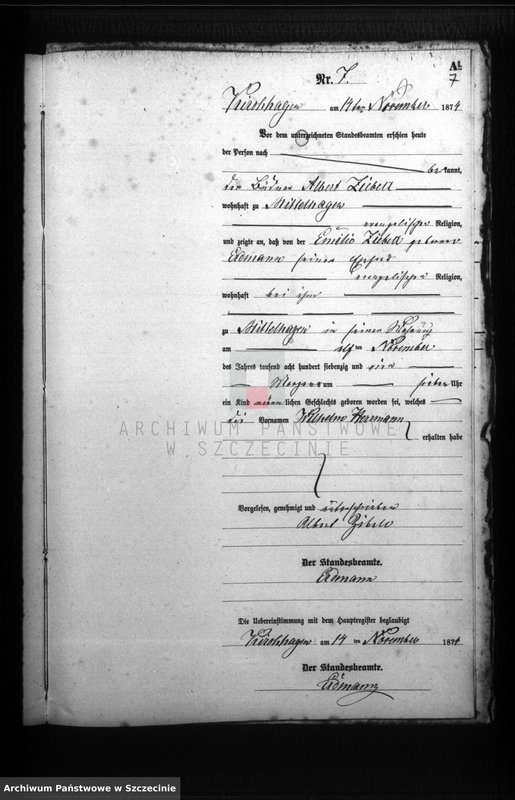 A1.
Nr. 7.
7
Kirchhagen am 14ten November 1874
Vor dem unterzeichneten Standesbeamten erschien heute
der Person nach
bekannt,
der Büdner Albert Ziebell
wohnhaft zu Mittelhagen
evangelischer Religion,
und zeigte an, daß von der Emilie Ziebell geborne
Erdmann seiner Ehefrau
evangelischer Religion,
wohnhaft bei ihm
zu Mittelhagen in seiner Wohnung
am elf ten November
des Jahres tausend acht hundert siebenzig und vier
Morgens um sieben Uhr
ein Kind männlichen Geschlechts geboren worden sei, welches
die Vornamen Wilhelm Herrmann
erhalten habe
ARCHIWUM PAŃSTWOWE
W SZCZECINIE
Vorgelesen, genehmigt und unterschrieben
Albert
Der Standesbeamte.
Erdmann
Die Uebereinstimmung mit dem Hauptregister beglaubigt
Kirchhagen am 14 ten November 1874
Der Standesbeamte.
Erdmann
Archiwum Państwowe w Szczecinie